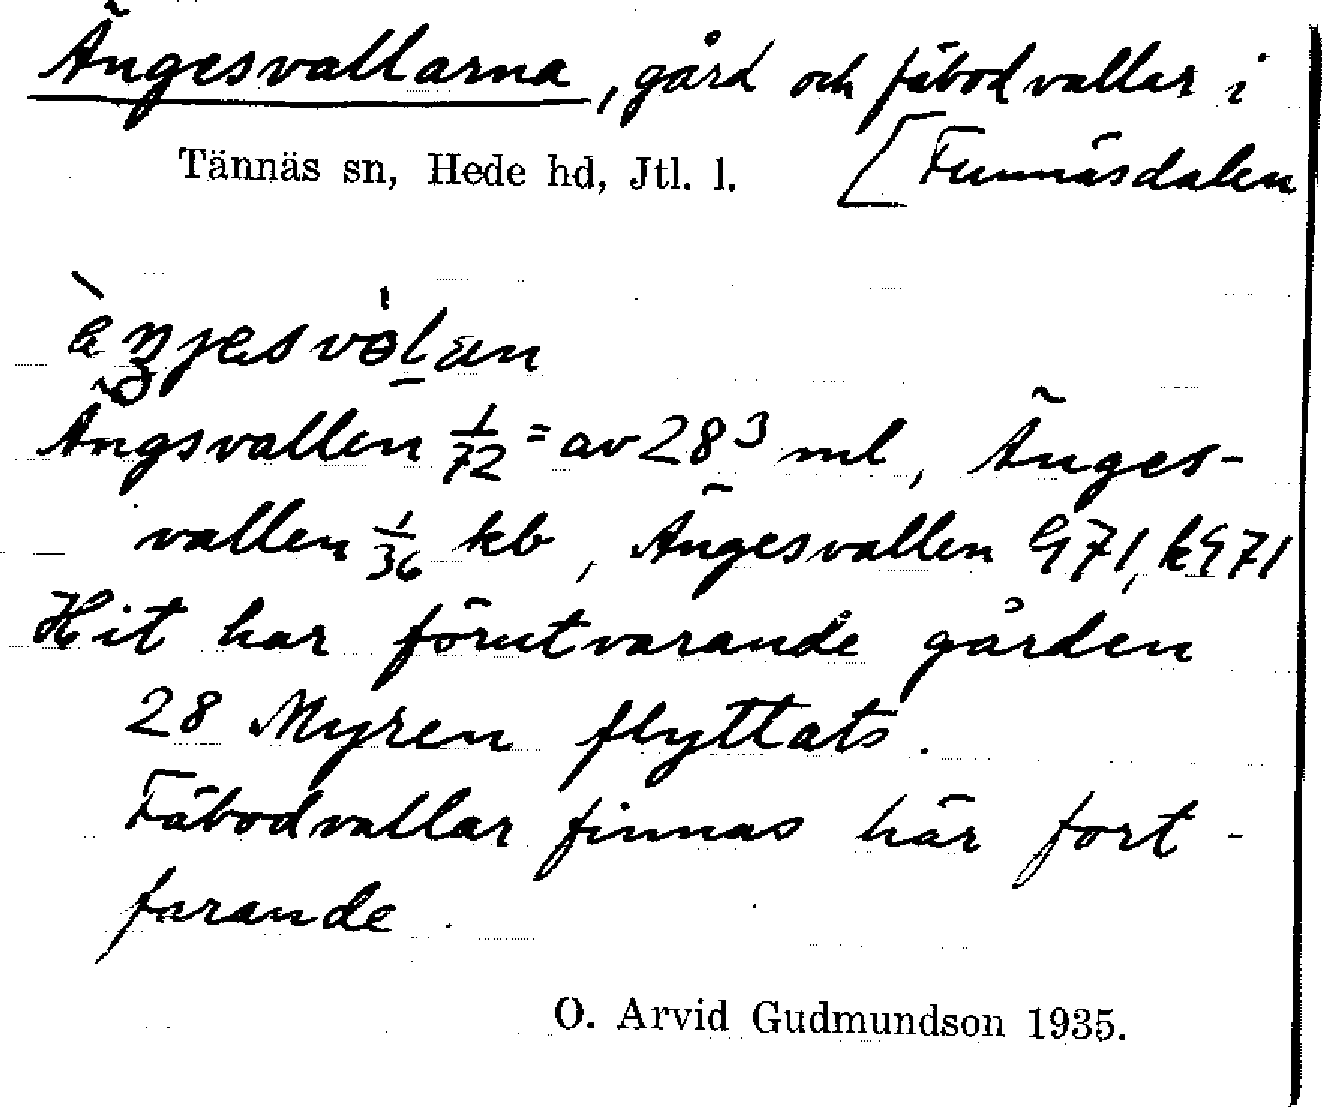 Ängesvallarna, gård och fäbodvallar i
Tännäs sn, Hede hd, Jtl. l. [Funnäsdalen
Ängsvallen 1/72 = av 28³ ml, Änges-
vallen 1/36 kb, Ängesvallen G71, kG71
Hit har förutvarande gården
28 Myren flyttats.
Fäbodvallar finnas här fort-
farande.
O. Arvid Gudmundson 1935.